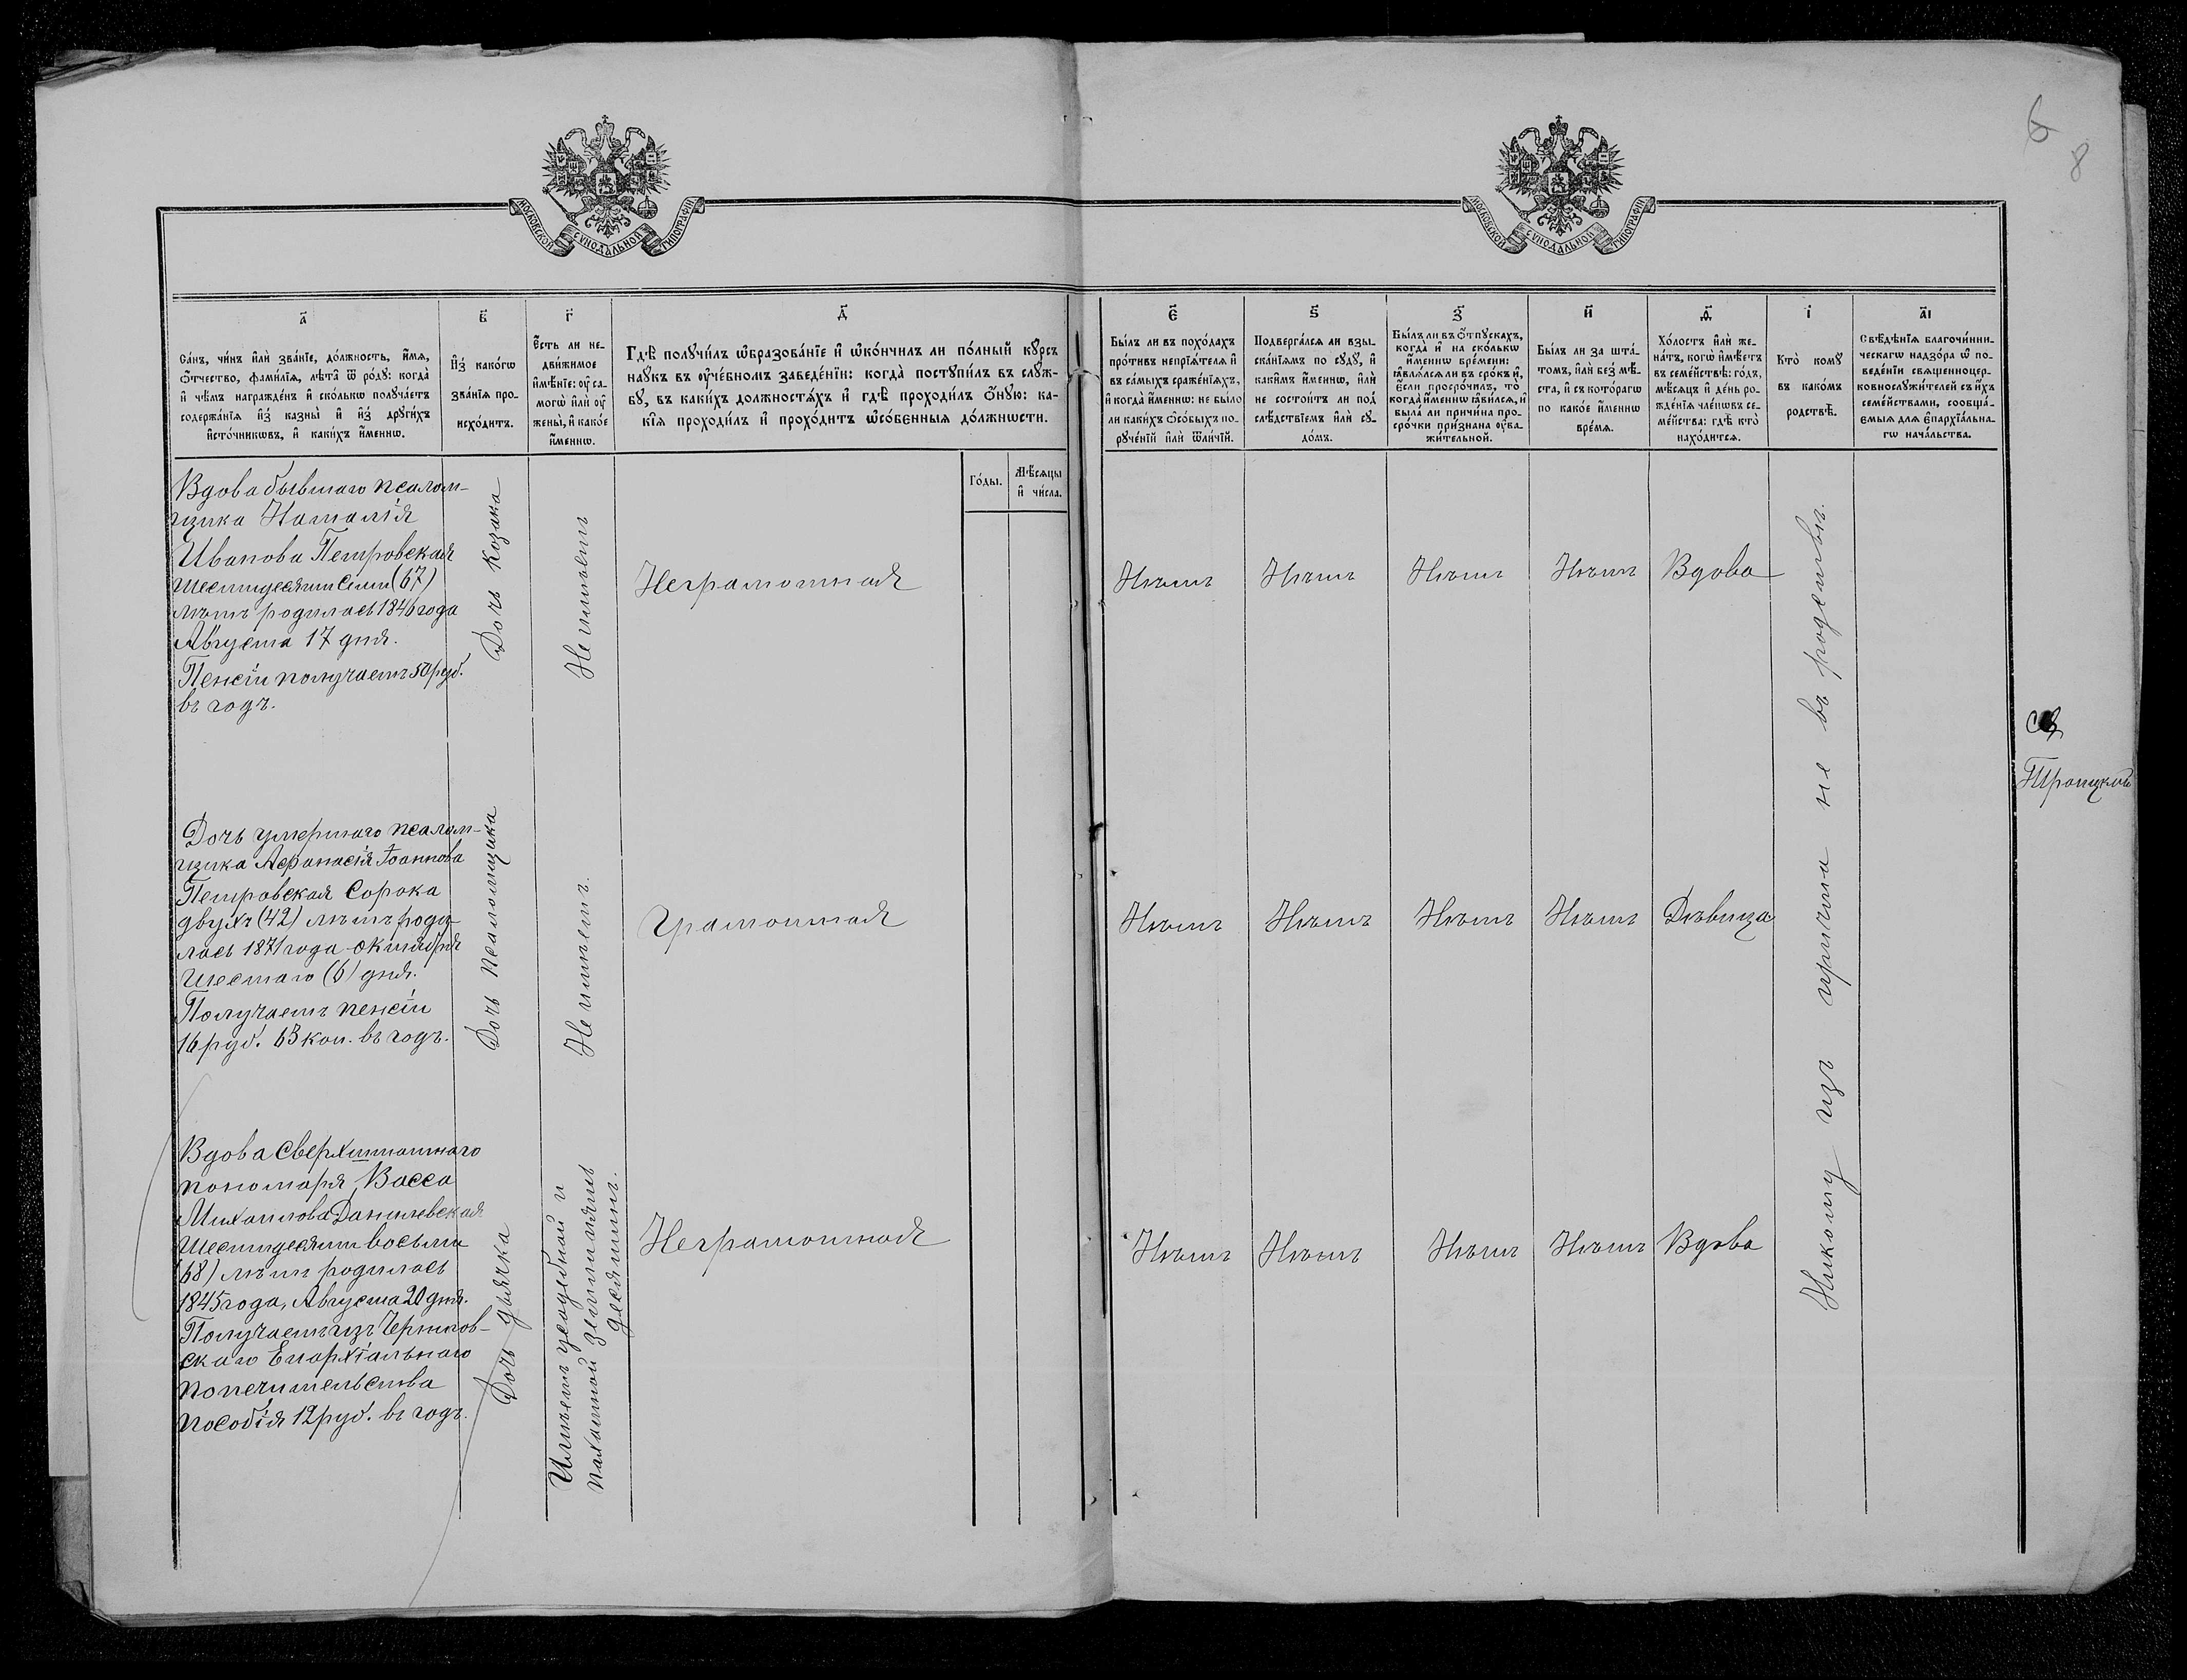 6
8
МОСКОВСКОЙ СУНОДАЛЬНОЙ ТИПОГРАФІИ
МОСКОВСКОЙ СУНОДАЛЬНОЙ ТИПОГРАФІИ
а҃
Са́нъ, чи́нъ и҆лѝ зва́нїе, до́лжность, и҆́мѧ,
ѻ҆́тчество, фами́лїѧ, лѣ́та ѿ ро́дꙋ: когда̀
и҆ чѣ́мъ награжде́нъ и҆ ско́лькѡ полꙋча́етъ
содержа́нїѧ и҆з̾ казны̀ и҆ и҆з̾ дрꙋги́хъ
и҆сто́чникѡвъ, и҆ каки́хъ и҆́меннѡ.
в҃
И҆з̾ како́гѡ
зва́нїѧ про-
исхо́дитъ.
г҃
Е҆́сть ли не-
дви́жимое
и҆мѣ́нїе: ᲂу҆ са-
могѡ̀ и҆лѝ ᲂу҆
жены̀, и҆ како́е
и҆́меннѡ.
д҃
Гдѣ̀ полꙋчи́лъ ѡ҆бразова́нїе и҆ ѡ҆ко́нчилъ ли по́лный кꙋ́рсъ
наꙋ́къ въ ᲂу҆че́бномъ заведе́нїи: когда̀ постꙋпи́лъ въ слꙋ́ж-
бꙋ, въ каки́хъ должностѧ́хъ и҆ гдѣ̀ проходи́лъ ѻ҆́нꙋю: ка-
кі̑ѧ проходи́лъ и҆ прохо́дитъ ѡ҆со́бенныѧ до́лжнѡсти.
Го́ды.
Мѣ́сѧцы
и҆ чи́сла.
є҃
Бы́лъ ли въ похо́дахъ
про́тивъ непрїѧ́телѧ и҆
въ са́мыхъ сраже́нїѧхъ,
и҆ когда̀ и҆́меннѡ: не бы́ло
ли каки́хъ ѻ҆со́быхъ по-
рꙋче́нїй и҆лѝ ѿли́чїй.
ѕ҃
Подверга́лсѧ ли взы-
ска́нїѧмъ по сꙋдꙋ̀, и҆
каки́мъ и҆́меннѡ, и҆лѝ
не состои́тъ ли под̾
слѣ́дствїемъ и҆лѝ сꙋ-
до́мъ.
з҃
Бы́лъ ли въ ѻ҆́тпꙋскахъ,
когда̀ и҆ на ско́лькѡ
и҆́меннѡ вре́мени:
ꙗ҆влѧ́лсѧ ли въ сро́къ и҆,
є҆́сли просро́чилъ, то̀
когда̀ и҆́меннѡ ꙗ҆ви́лсѧ, и҆
была̀ ли причи́на про-
сро́чки при́знана ᲂу҆ва-
жи́тельной.
и҃
Бы́лъ ли за шта́-
томъ, и҆лѝ без̾ мѣ́-
ста, и҆ съ кото́рагѡ
по како́е и҆́меннѡ
вре́мѧ.
ѳ҃
Хо́лостъ и҆лѝ же-
на́тъ, когѡ̀ и҆мѣ́етъ
въ семе́йствѣ: го́дъ,
мѣ́сѧцъ и҆ де́нь ро-
жде́нїѧ чле́нѡвъ се-
ме́йства: гдѣ̀ кто̀
нахо́дитсѧ.
і҃
Кто̀ комꙋ̀
въ како́мъ
родствѣ̀.
а҃і
Свѣ́дѣнїѧ благочи́нни-
ческагѡ надзо́ра ѡ҆ по-
веде́нїи свѧщенноцер-
ковнослꙋжи́телей съ и҆́хъ
семе́йствами, сообща́-
емыѧ длѧ є҆парⷯїа́льна-
гѡ нача́льства.
Вдова бывшаго псалом-
щика Наталія
Иванова Петровская
шестидесяти семи (67)
лѣтъ родилась 1846 года
Августа 17 дня.
Пенсіи получаетъ 50 руб.
въ годъ.
Дочь козака
Не имѣетъ
Неграмотная
Нѣтъ
Нѣтъ
Нѣтъ
Нѣтъ
Вдова
Никому изъ причта не въ родствѣ.
Троицкой
Дочь умершаго псалом-
щика Афанасія Іоаннова
Петровская сорока
двухъ (42) лѣтъ роди-
лась 1871 года октября
шестаго (6) дня.
Получаетъ пенсіи
16 руб. 63 коп. въ годъ.
Дочь псаломщика
Не имѣетъ.
Грамотная
Нѣтъ
Нѣтъ
Нѣтъ
Нѣтъ
Дѣвица
Вдова сверхштатнаго
пономаря Васса
Михаилова Данилевская
шестидесяти восьми
(68) лѣтъ родилась
1845 года, Августа 20 дня.
Получаетъ изъ Чернигов-
скаго Епархіальнаго
попечительства
пособія 12 руб. въ годъ.
Дочь дьячка
Имѣетъ усадебной и
пахатной земли пять
десятинъ.
Неграмотная
Нѣтъ
Нѣтъ
Нѣтъ
Нѣтъ
Вдова